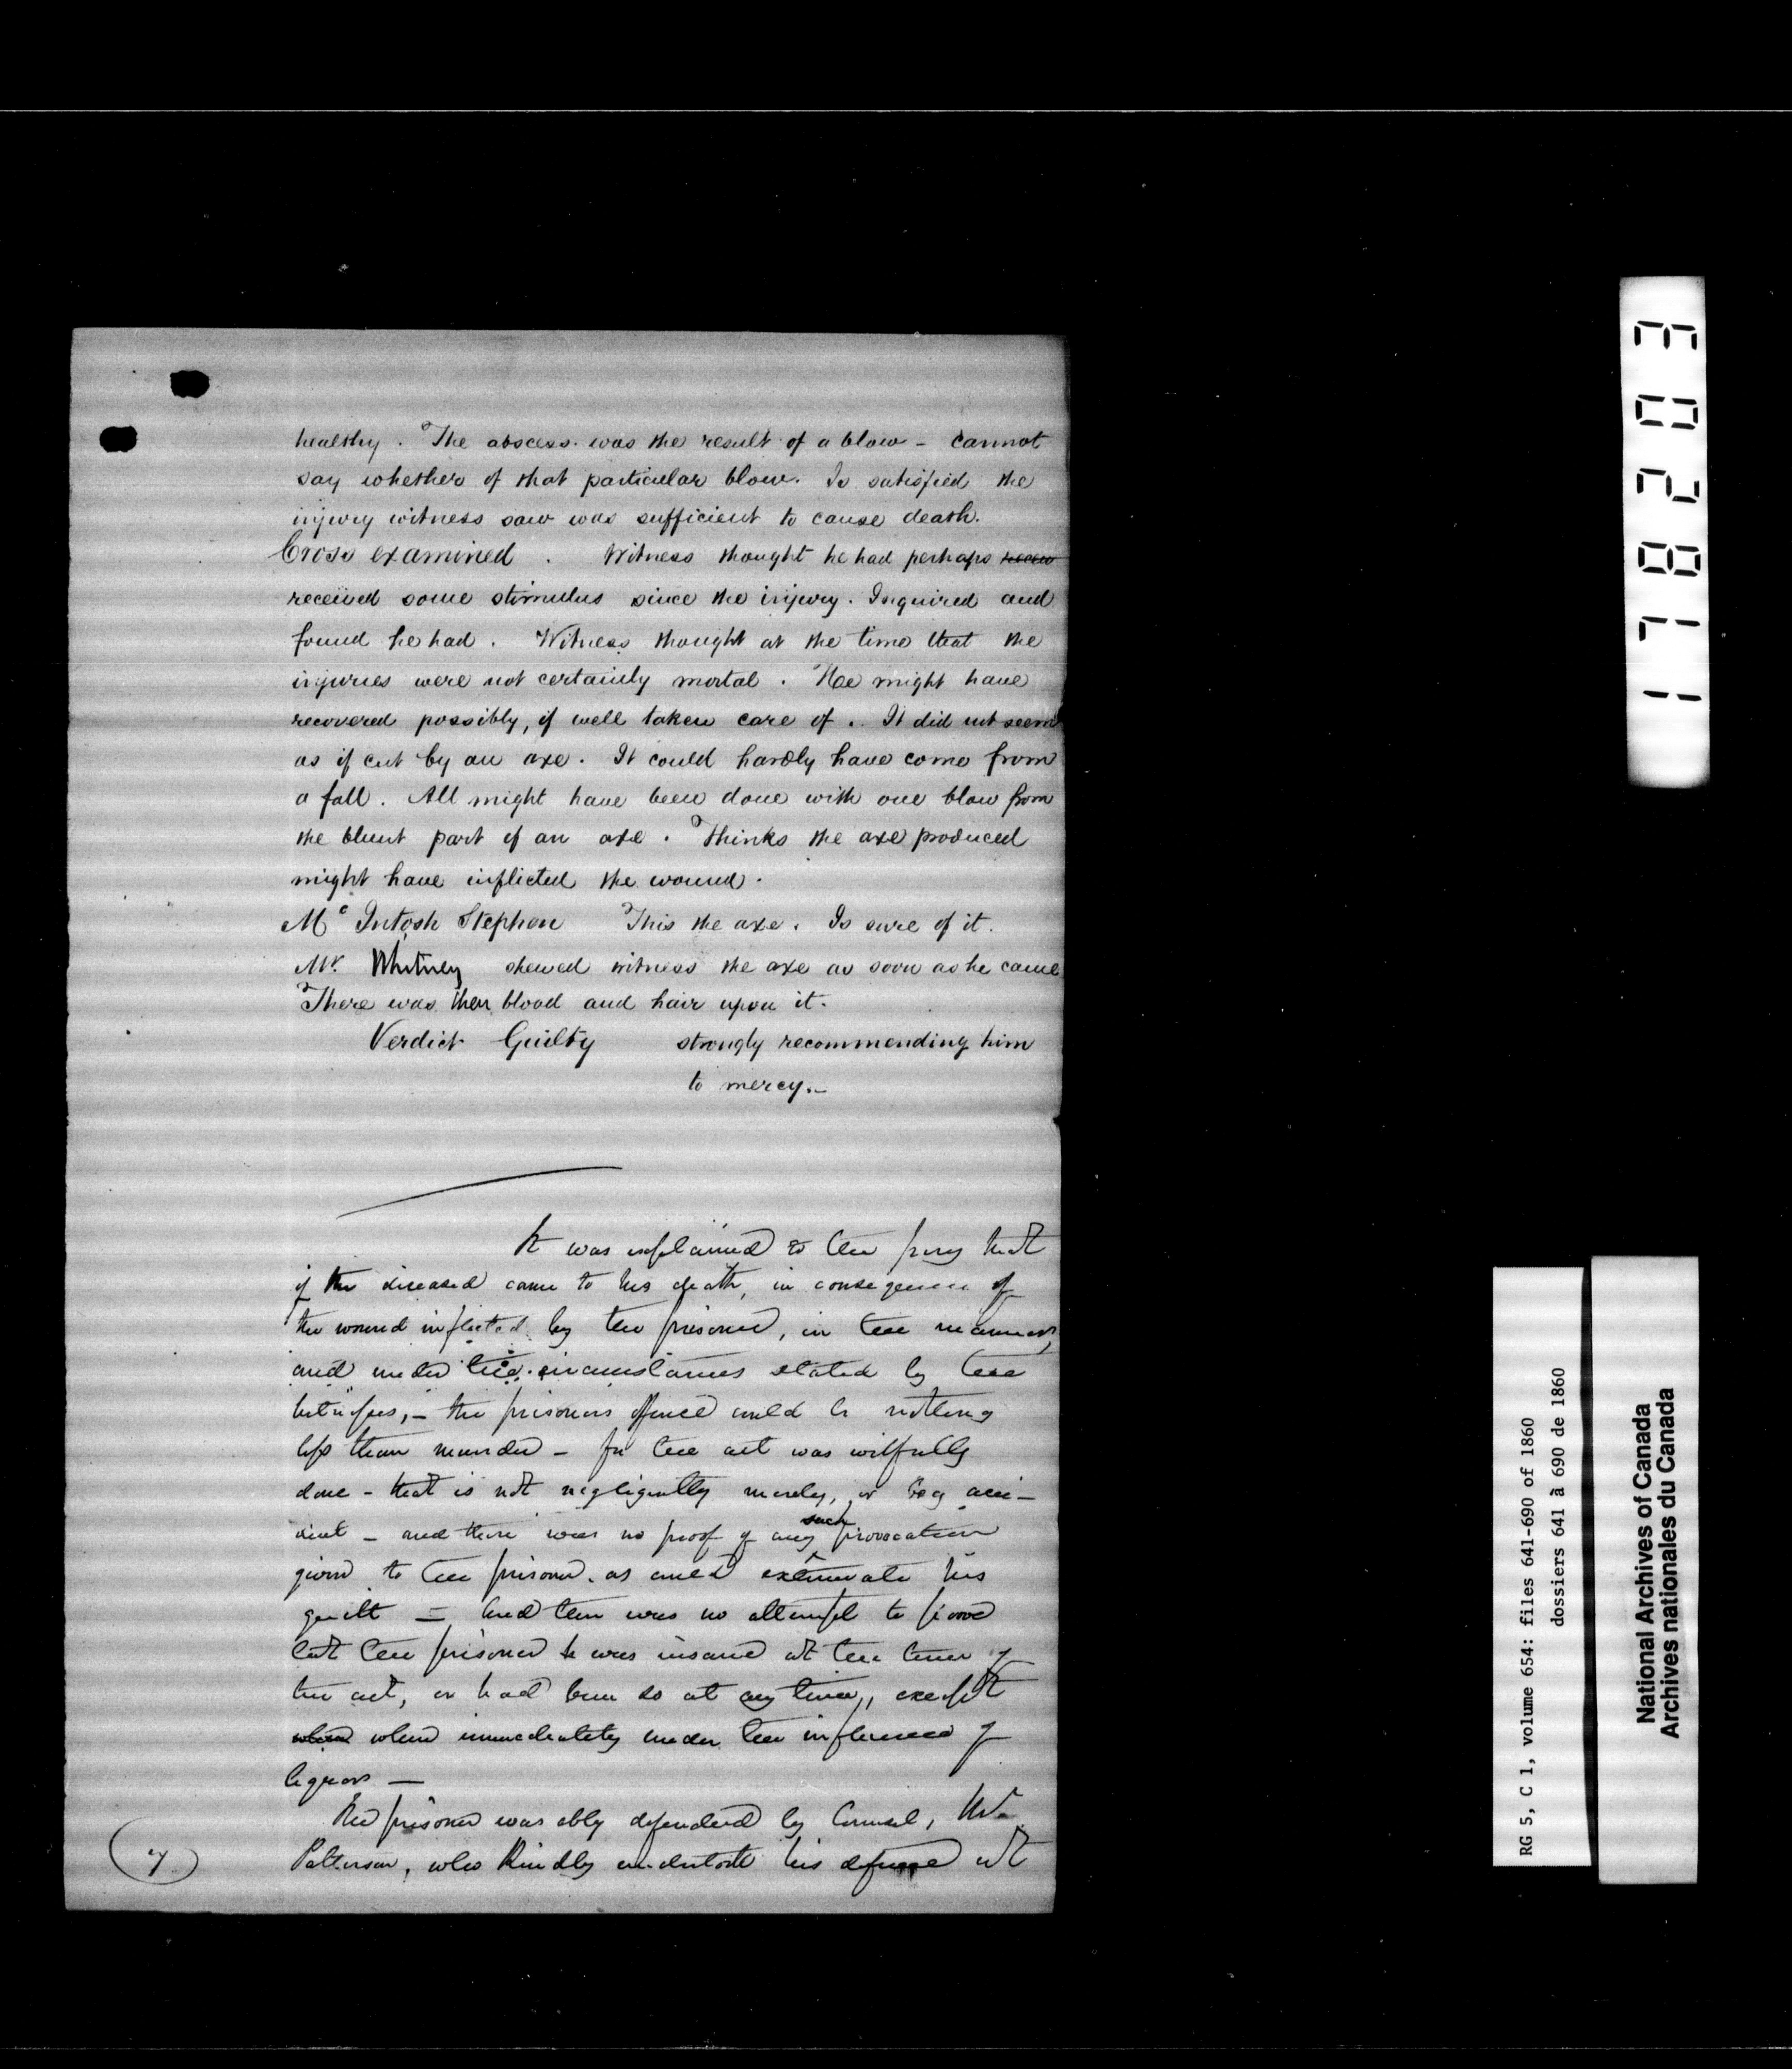 healthy. The abscess was the result of a blow - cannot
say whether of that particular blow. Is satisfied the
injury witness saw was sufficient to cause death.
Cross examined. Witness thought he had perhaps
received some stimulus since the injury. Inquired and
found he had. Witness thought at the time that the
injuries were not certainly mortal. He might have
recovered possibly, if well taken care of. It did not seem
as if cut by an axe. It could hardly have come from
a fall. All might have been done with one blow from
the blunt part of an axe. Thinks the axe produced
might have inflicted the wound.
Mc Intosh Stephen This the axe. Is sure of it.
Mr. Whitney shewed witness the axe as soon as he came
There was then blood and hair upon it.
Verdict Guilty strongly recommending him
to mercy.-
It was explained to the jury that
if the diseased came to his death, in consequence of
the wound inflicted by the prisoner, in the manner,
and under the circumstances stated by the
witnesses, - the prisoners offence could be nothing
less than murder - for the act was wilfully
done - that is not negligently merely, or by acci-
dent - and there was no proof of any such provocation
given to the prisoner as could extenuate his
guilt = And there was no attempt to prove
that the prisoner he was insane at the time of
the act, or had been so at any time, except
when when immediately under the influence of
liquors -
The prisoner was ably defended by Counsel, Mr.
Patterson, who kindly undertook his defence at
7
1718203
RG 5, C 1, volume 654: files 641-690 of 1860
dossiers 641 à 690 de 1860
National Archives of Canada
Archives nationales du Canada